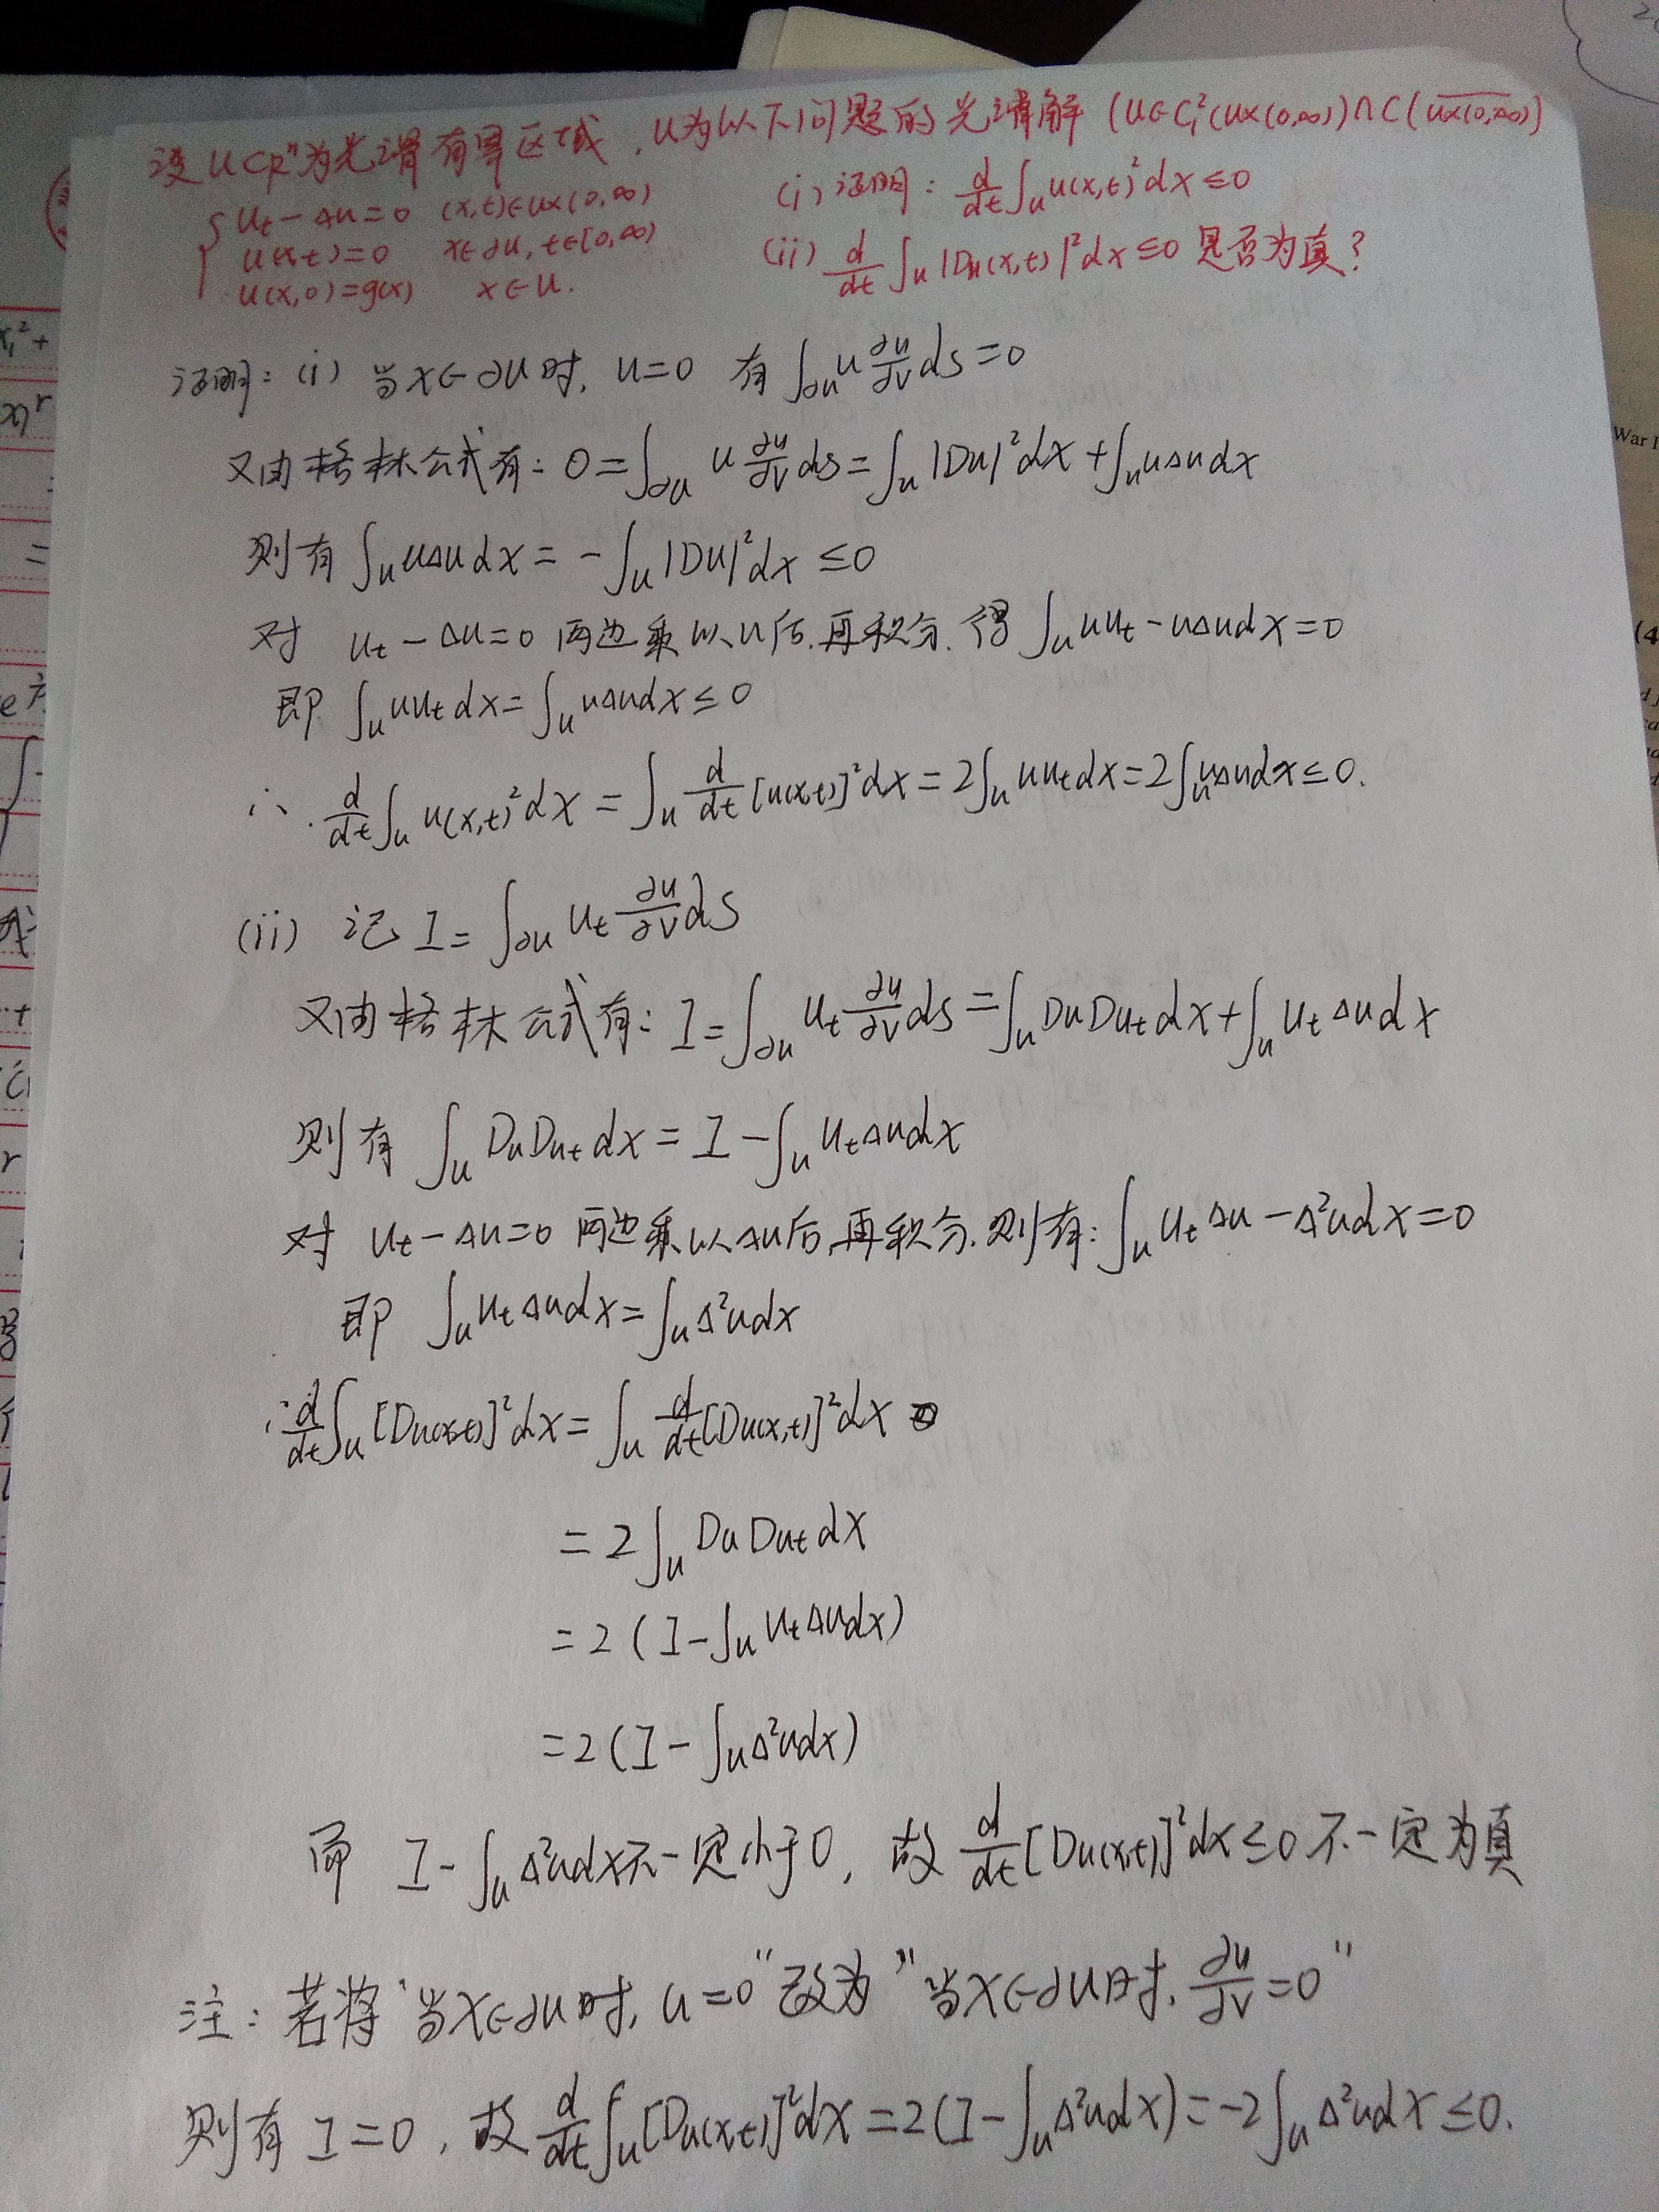 设U⊂Rⁿ为光滑有界区域，u为以下问题的光滑解 (u∈C₁²(U×(0,∞))∩C(\overline{U×(0,∞)})
{ u_t-Δu=0 (x,t)∈U×(0,∞)
u(x,t)=0 x∈∂U, t∈[0,∞)
u(x,0)=g(x) x∈U.
(i) 证明: d/dt ∫_U u(x,t)²dx≤0
(ii) d/dt ∫_U |Du(x,t)|²dx≤0 是否为真?
证明: (i) 当x∈∂U时, u=0 有 ∫_∂U u ∂u/∂ν ds=0
又由格林公式有: 0=∫_∂U u ∂u/∂ν ds=∫_U |Du|²dx+∫_U uΔu dx
则有 ∫_U uΔu dx=-∫_U |Du|²dx≤0
对 u_t-Δu=0 两边乘以u后,再积分. 得 ∫_U uu_t-uΔu dx=0
即 ∫_U uu_t dx=∫_U uΔu dx≤0
∴ d/dt ∫_U u(x,t)²dx=∫_U d/dt [u(x,t)]²dx=2∫_U uu_t dx=2∫_U uΔu dx≤0.
(ii) 记 I=∫_∂U u_t ∂u/∂ν ds
又由格林公式有: I=∫_∂U u_t ∂u/∂ν ds=∫_U Du Du_t dx+∫_U u_t Δu dx
则有 ∫_U Du Du_t dx=I-∫_U u_t Δu dx
对 u_t-Δu=0 两边乘以Δu后,再积分. 则有: ∫_U u_t Δu-Δ²u dx=0
即 ∫_U u_t Δu dx=∫_U Δ²u dx
∴ d/dt ∫_U [Du(x,t)]²dx=∫_U d/dt [Du(x,t)]²dx
=2∫_U Du Du_t dx
=2(I-∫_U u_t Δu dx)
=2(I-∫_U Δ²u dx)
而 I-∫_U Δ²u dx不一定小于0, 故 d/dt [Du(x,t)]²dx≤0 不一定为真
注: 若将"当x∈∂U时, u=0"改为"当x∈∂U时, ∂u/∂ν=0"
则有 I=0, 故 d/dt ∫_U [Du(x,t)]²dx=2(I-∫_U Δ²u dx)=-2∫_U Δ²u dx≤0.
War
(4